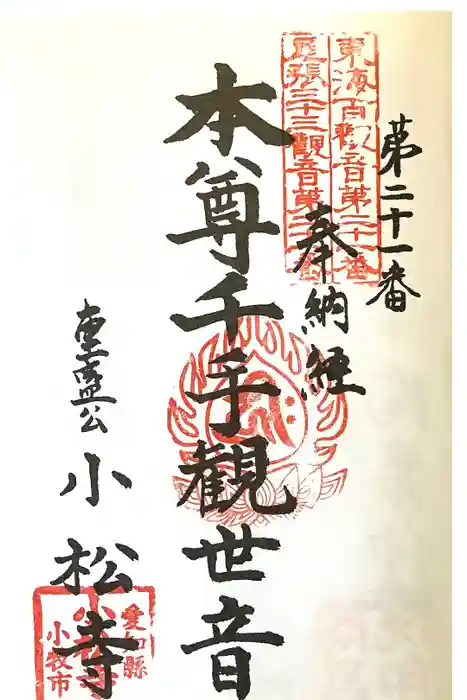 第二十一番
東海百觀音第二十一番
尾張三十三觀音第二
奉納経
本尊千手観世音
重盛公
小松寺
愛知縣
小牧市